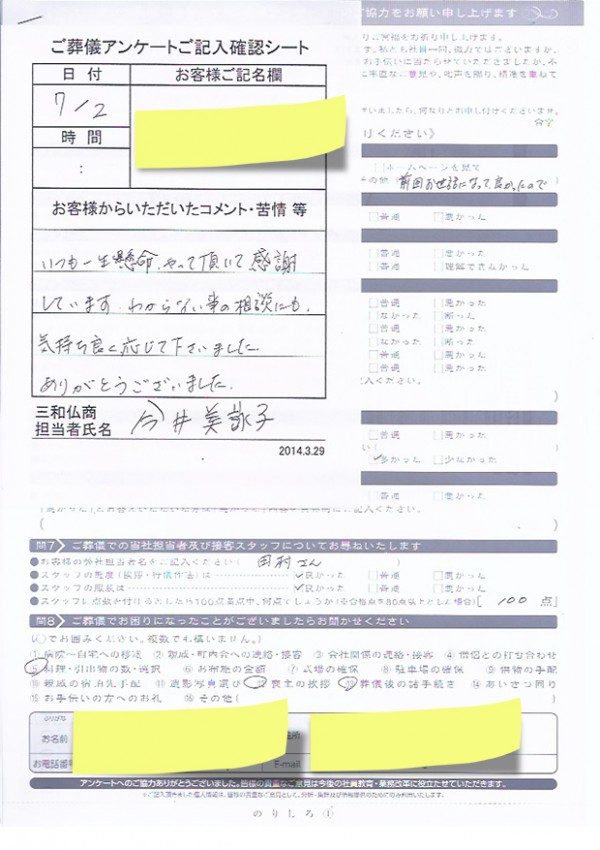 ご協力をお願い申し上げます
ご葬儀アンケートご記入確認シート
日付
お客様ご記名欄
7/2
時間
:
お客様からいただいたコメント・苦情 等
いつも一生懸命やって頂いて感謝
しています。わからない事の相談にも、
気持ち良く応じて下さいました。
ありがとうございました。
三和仏商
担当者氏名 今井 美詠子
2014.3.29
けください》
ホームページを見て
その他 前回お世話になって良かったので
普通 悪かった
普通 悪かった
普通 理解できなかった
普通 悪かった
なかった 断った
普通 悪かった
なかった 断った
普通 悪かった
普通 悪かった
入ください。
普通 悪かった
多かった 少なかった
普通 悪かった
問7 ご葬儀での当社担当者及び接客スタッフについてお尋ねいたします
●お客様の弊社担当者名をご記入ください( 田村さん )
●スタッフの態度(挨拶・行儀作法)は 良かった 普通 悪かった
●スタッフの服装は 良かった 普通 悪かった
●スタッフに点数を付けるとしたら100点満点中、何点でしょうか(※合格点を80点以上とした場合)[ 100 点]
問8 ご葬儀でお困りになったことがございましたらお聞かせください
(○でお囲みください。複数でも構いません。)
①病院〜自宅への移送 ②親戚・町内会への連絡・接客 ③会社関係の連絡・接客 ④僧侶との打ち合わせ
⑤料理・引出物の数・選択 ⑥お布施の金額 ⑦式場の確保 ⑧駐車場の確保 ⑨供物の手配
⑩親戚の宿泊先手配 ⑪遺影写真選び ⑫喪主の挨拶 ⑬葬儀後の諸手続き ⑭あいさつ回り
⑮お手伝いの方へのお礼 ⑯その他(
ふりがな
お名前
お電話番号
E-mail
アンケートへのご協力ありがとうございました。皆様の貴重なご意見は今後の社員教育・業務改革に役立たせていただきます。
のりしろ①